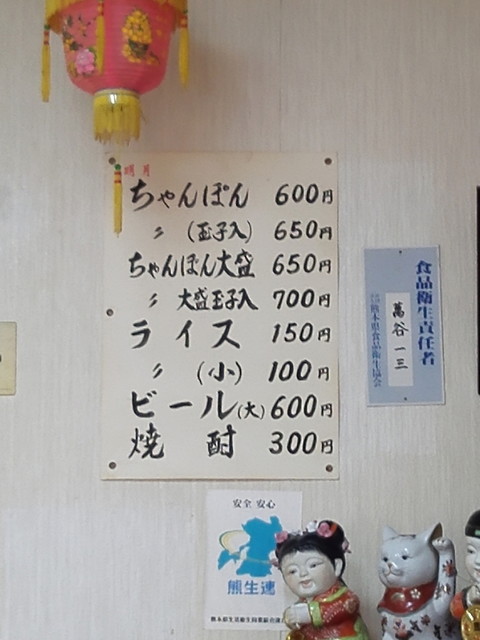 明月
ちゃんぽん 600円
〃 (玉子入) 650円
ちゃんぽん大盛 650円
〃 大盛玉子入 700円
ライス 150円
〃 (小) 100円
ビール(大) 600円
焼酎 300円
食品衛生責任者
萬谷一三
熊本県食品衛生協会
安全 安心
熊生連